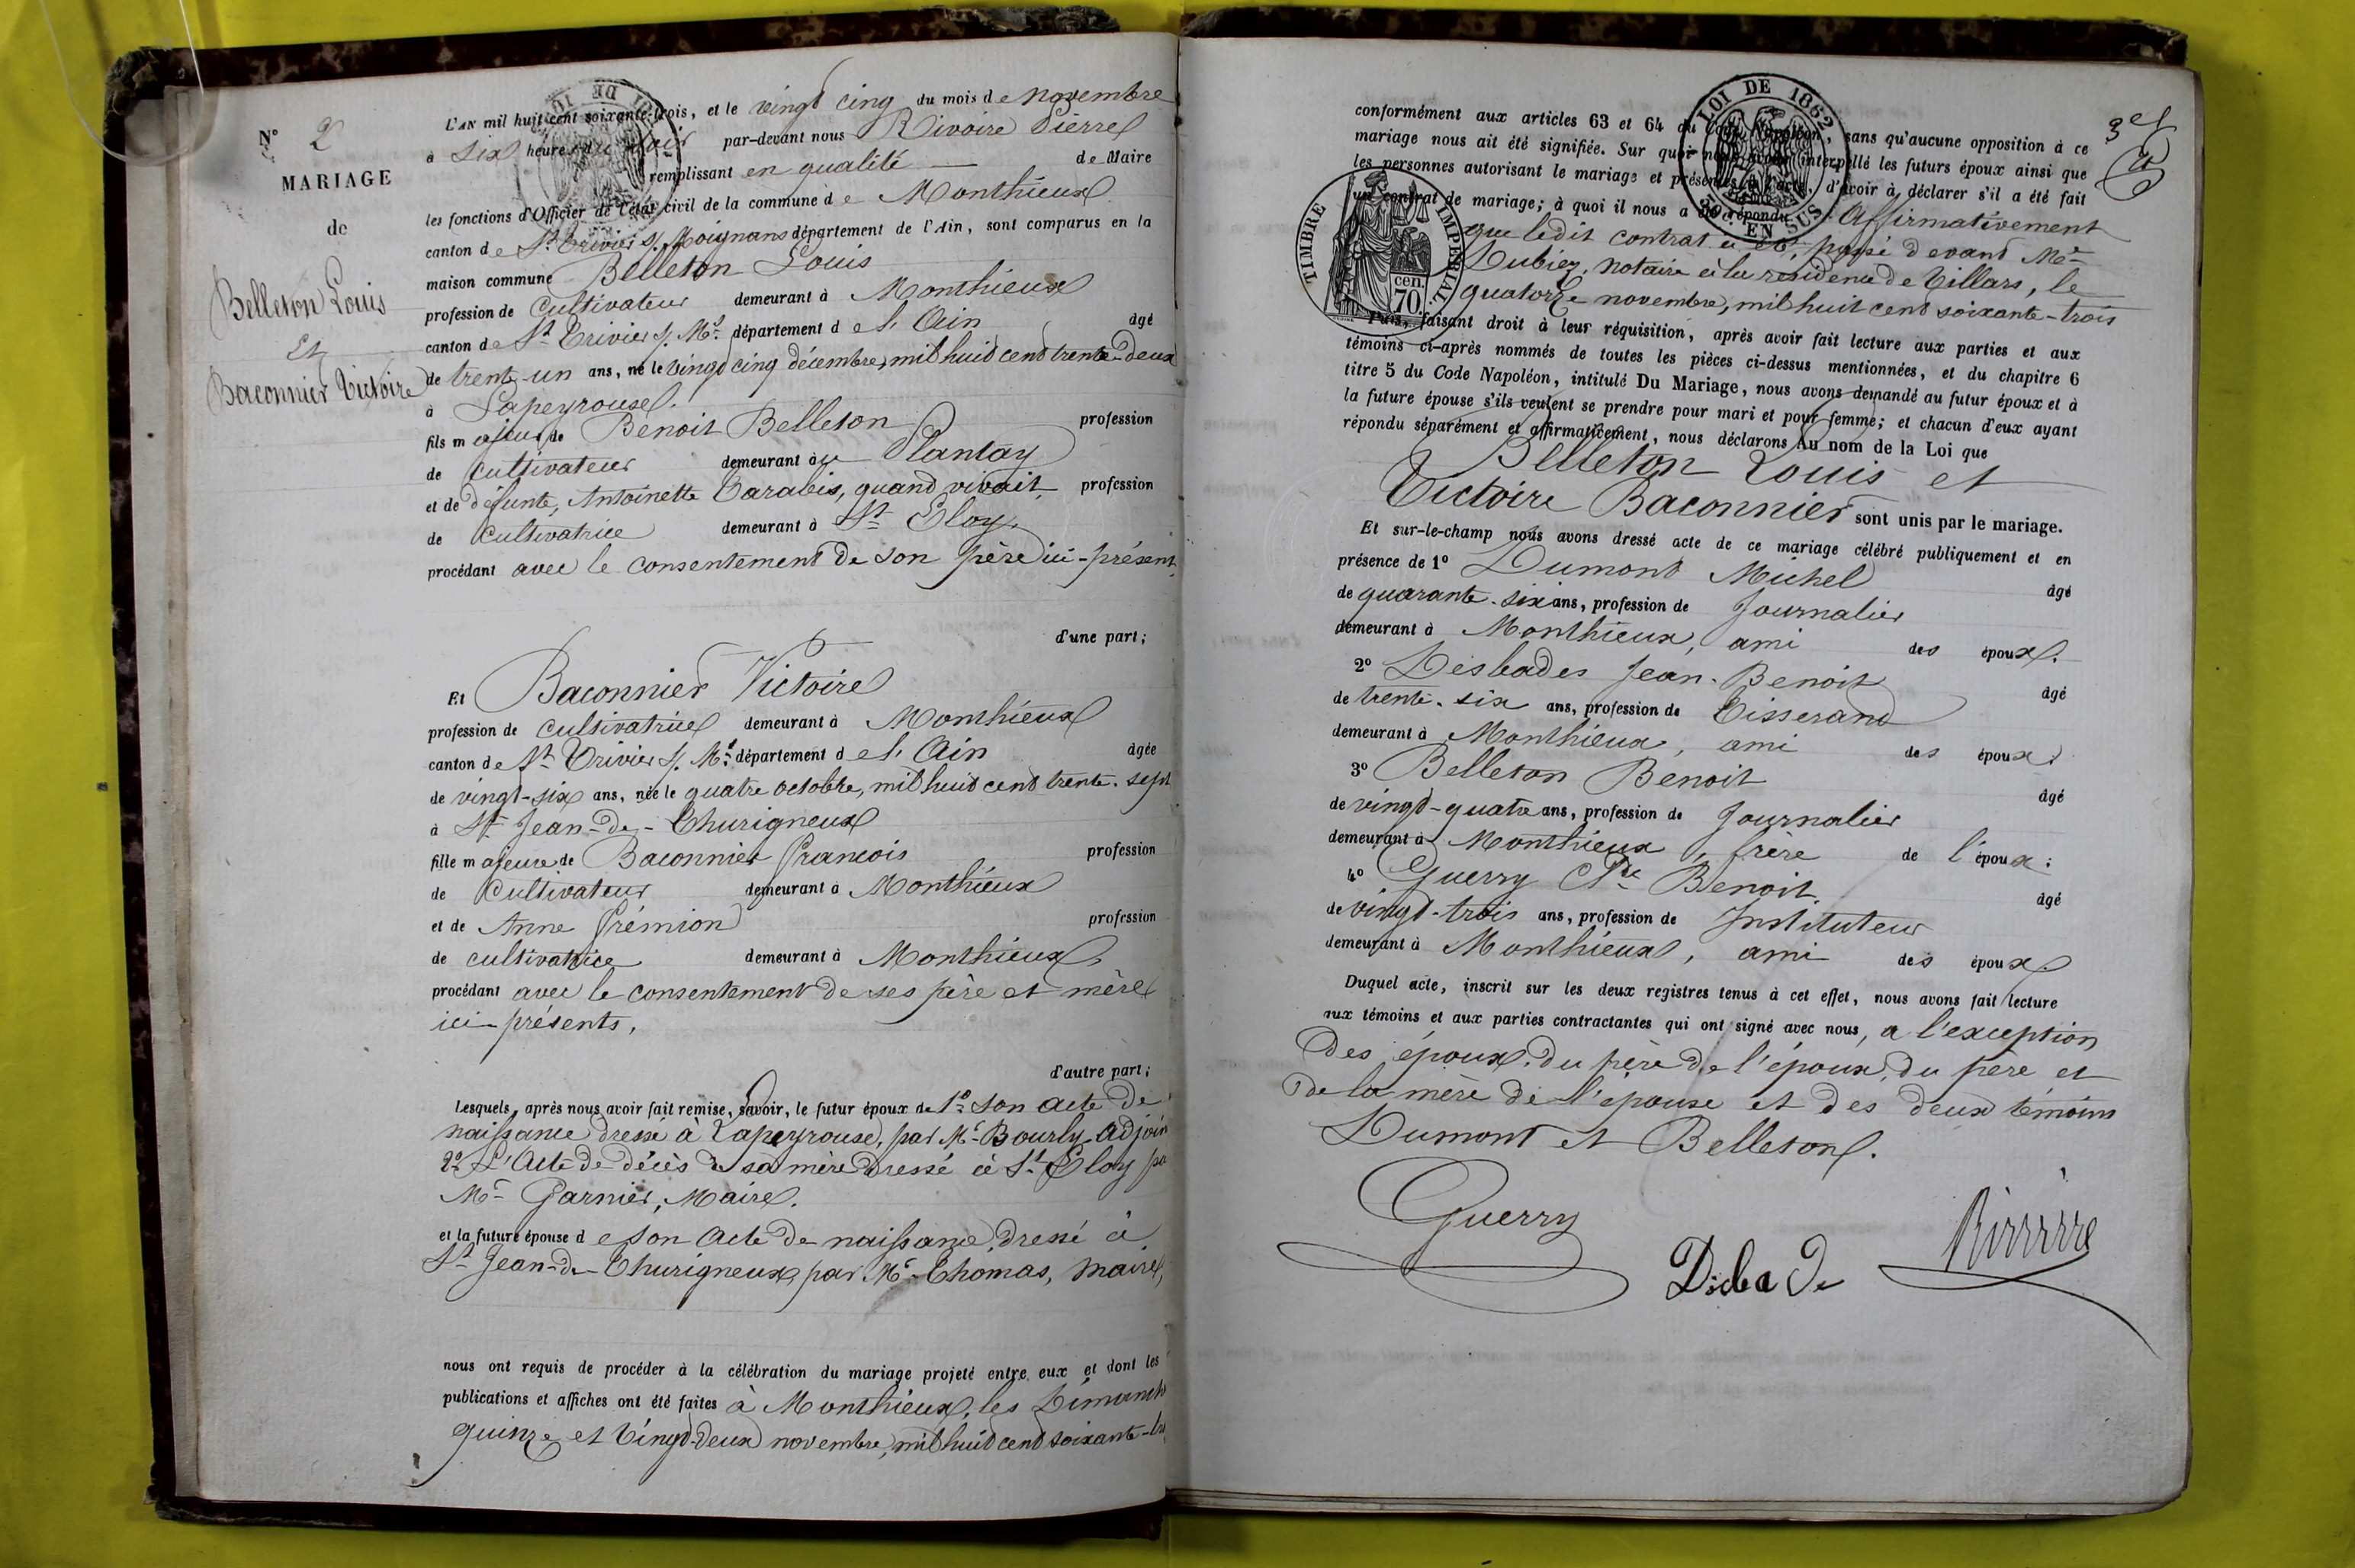 N° 2
MARIAGE
de
Belleton Louis
Et
Baconnier Victoire
L'AN mil huit cent soixante-trois, et le vingt cinq du mois de novembre
à six heures du soir par-devant nous Rivoire Pierre
remplissant en qualité de Maire
les fonctions d'Officier de l'état civil de la commune de Monthieux
canton de St Trivier s/. Moignans département de l'Ain, sont comparus en la
maison commune Belleton Louis
profession de Cultivateur demeurant à Monthieux
canton de St Trivier s/. Mns département de l'Ain âgé
de trente-un ans, né le vingt cinq décembre, mil huit cent trente-deux
à Lapeyrouse.
fils majeur de Benoit Belleton profession
de Cultivateur demeurant à Plantay
et de défunte, Antoinette Carabis, quand vivait, profession
de Cultivatrice demeurant à St Eloy.
procédant avec le consentement de son père ici-présent,
d'une part;
Et Baconnier Victoire
profession de cultivatrice demeurant à Monthieux
canton de St Trivier s/. Mns département de l'Ain âgée
de vingt-six ans, née le quatre octobre, mil huit cent trente-sept
à St Jean-de-Thurigneux
fille majeure de Baconnier François profession
de Cultivateur demeurant à Monthieux
et de Anne Frémion profession
de cultivatrice demeurant à Monthieux,
procédant avec le consentement de ses père et mère
ici-présents,
d'autre part;
Lesquels, après nous avoir fait remise, savoir, le futur époux de 1° son acte de
naissance dressé à Lapeyrouse, par Mr Bourly adjoin
2° L'Acte de décès de sa mère dressé à St Eloy pa
Mr Garnier, Maire.
et la future épouse de son acte de naissance, dressé à
St Jean-de-Thurigneux, par Mr Thomas, maire,
nous ont requis de procéder à la célébration du mariage projeté entre eux et dont les
publications et affiches ont été faites à Monthieux, les Dimanch
quinze et vingt-deux novembre, mil huit cent soixante-tro
3et
LOI DE 1862
EN SUS
TIMBRE IMPERIAL
70 cen.
conformément aux articles 63 et 64 du Code Napoléon, sans qu'aucune opposition à ce
mariage nous ait été signifiée. Sur quoi nous avons interpellé les futurs époux ainsi que
les personnes autorisant le mariage et présentes à l'acte, d'avoir à déclarer s'il a été fait
un contrat de mariage; à quoi il nous a été répondu: Affirmativement
que ledit contrat a été passé devant Me
Dubiez, notaire à la résidence de Villars, le
quatorze novembre, mil huit cent soixante-trois
Puis, faisant droit à leur réquisition, après avoir fait lecture aux parties et aux
témoins ci-après nommés de toutes les pièces ci-dessus mentionnées, et du chapitre 6
titre 5 du Code Napoléon, intitulé Du Mariage, nous avons demandé au futur époux et à
la future épouse s'ils veulent se prendre pour mari et pour femme; et chacun d'eux ayant
répondu séparément et affirmativement, nous déclarons Au nom de la Loi que
Belleton Louis et
Victoire Baconnier sont unis par le mariage.
Et sur-le-champ nous avons dressé acte de ce mariage célébré publiquement et en
présence de 1° Dumont Michel âgé
de quarante-six ans, profession de Journalier
demeurant à Monthieux, ami des époux.
2° Desbades Jean-Benoit âgé
de trente-six ans, profession de Tisserand
demeurant à Monthieux, ami des époux;
3° Belleton Benoit âgé
de vingt-quatre ans, profession de Journalier
demeurant à Monthieux, frère de l'époux;
4° Guerry Cde Benoit, âgé
de vingt-trois ans, profession de Instituteur
demeurant à Monthieux, ami des époux.
Duquel acte, inscrit sur les deux registres tenus à cet effet, nous avons fait lecture
aux témoins et aux parties contractantes qui ont signé avec nous, a l'exception
des époux, du père de l'époux, du père et
de la mère de l'epouse et des deux témoins
Dumont et Belleton.
Guerry
Rivoire